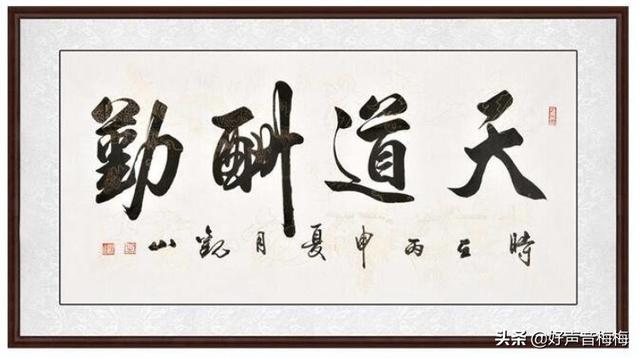 天道酬勤
時在丙申夏月觀山
头条 @好声音梅梅